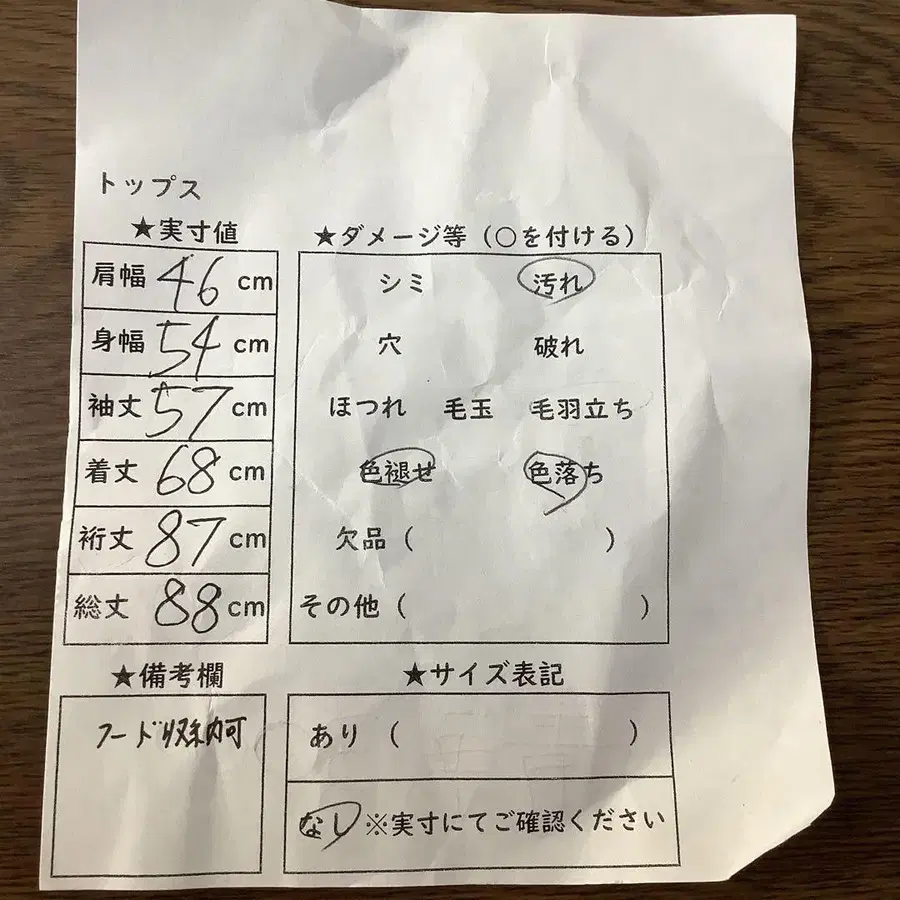 トップス
★実寸値
肩幅 46 cm
身幅 54 cm
袖丈 57 cm
着丈 68 cm
裄丈 87 cm
総丈 88 cm
★ダメージ等（○を付ける）
シミ 汚れ
穴 破れ
ほつれ 毛玉 毛羽立ち
色褪せ 色落ち
欠品（ ）
その他（ ）
★備考欄
フード収納可
★サイズ表記
あり（ ）
なし ※実寸にてご確認ください